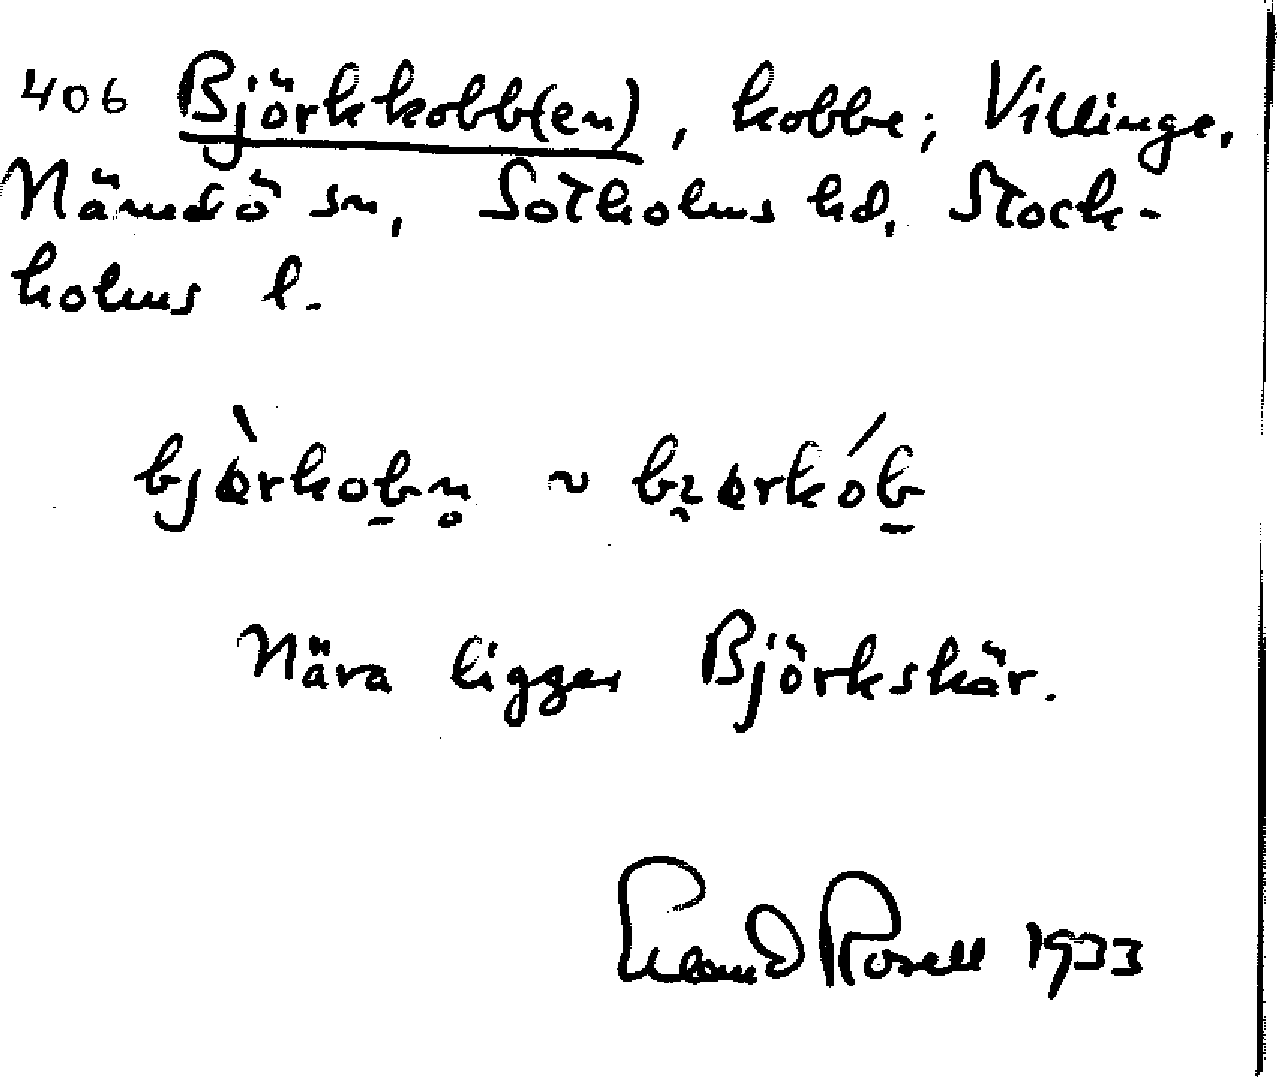 406 Björkkobb(en), kobbe; Villinge,
Nämdö sn, Sotholms hd, Stock-
holms l.
bjø̀rkob̲n̥ ~ bı̯ørkób̲
Nära ligger Björkskär.
Erland Rosell 1933